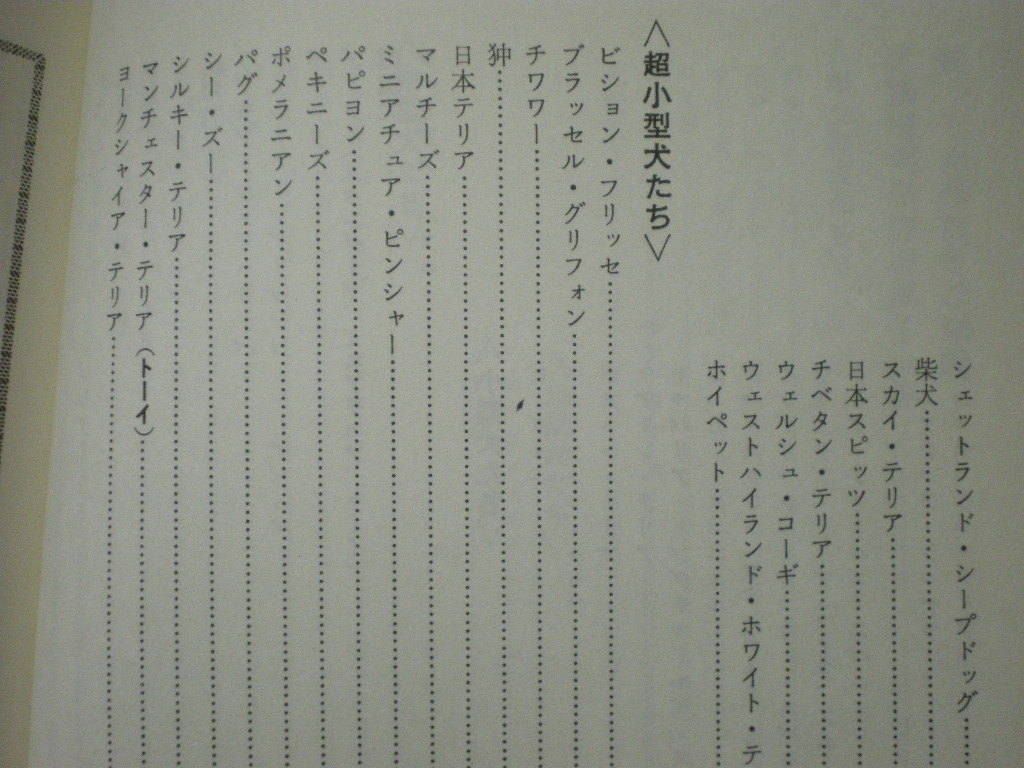 シェットランド・シープドッグ
柴犬
スカイ・テリア
日本スピッツ
チベタン・テリア
ウェルシュ・コーギ
ウェストハイランド・ホワイト・テ
ホイペット
＜超小型犬たち＞
ビション・フリッセ
ブラッセル・グリフォン
チワワー
狆
日本テリア
マルチーズ
ミニアチュア・ピンシャー
パピヨン
ペキニーズ
ポメラニアン
パグ
シー・ズー
シルキー・テリア
マンチェスター・テリア（トーイ）
ヨークシャイア・テリア